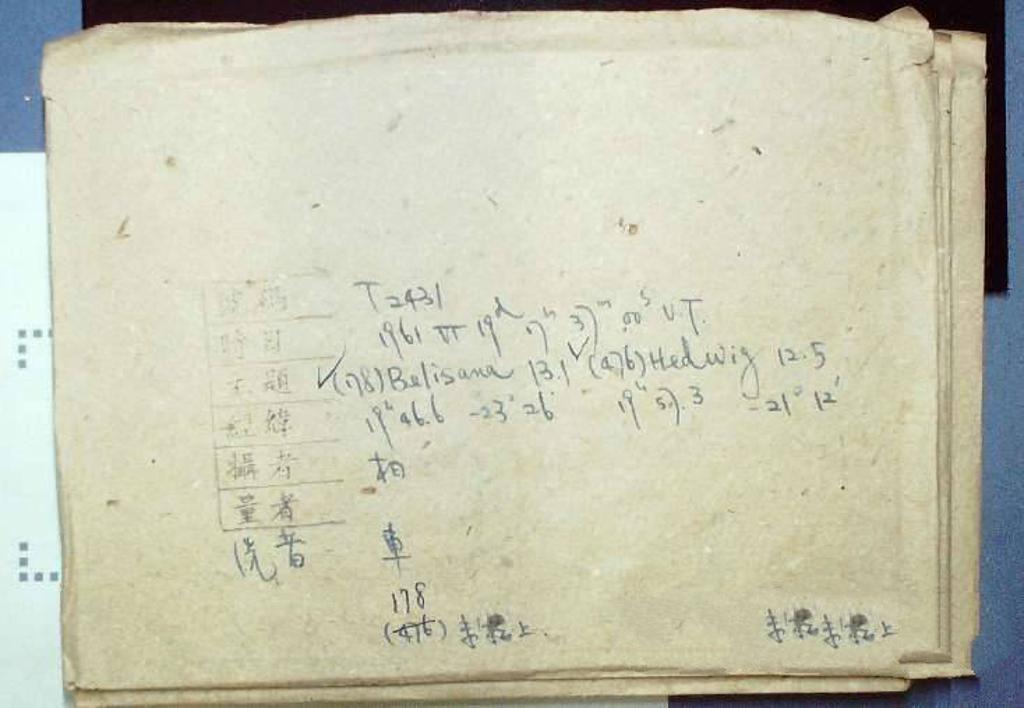 号码 T2431
时日 1961 VI 19ᵈ 17ʰ 37ᵐ 00ˢ U.T.
天题 ✓(178) Belisana 13.1 ✓(476) Hedwig 12.5
紅緯 19ʰ46.6 -23°26' 19ʰ57.3 -21°12'
攝者 相
量者
洗者 車
178
(476) 上.